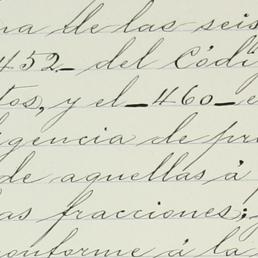 na de las seis
452_ del Códi
tos, y el _460_ e
igencia de pr
de aquellas á
as fracciones;
conforme á la